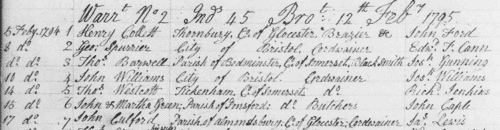 Warrt. No 2 Ind 45 Brot. 12th Feby 1795
5 Feby. 1794 1 Henry Collett Thornbury, C. of Glocester Brazier &c John Ford
8 do 2 Geo. Spurrier City of Bristol Cordwainer Edwd. T. Cann
do do 3 Thos. Barwell Parish of Bedminster, C. of Somerset, Blacksmith Jos. Gunning
10 do 4 John Williams City of Bristol Cordwainer Jos. Williams
14 do 5 Thos. Westcott Tickenham, C. of Somerset do Richd. Jenkins
15 do 6 John & Martha Green, Parish of do Butchers John Caple
17 do 7 John Parish of Almondsbury, C. of Glocester, Cordwainer Jas. Lewis